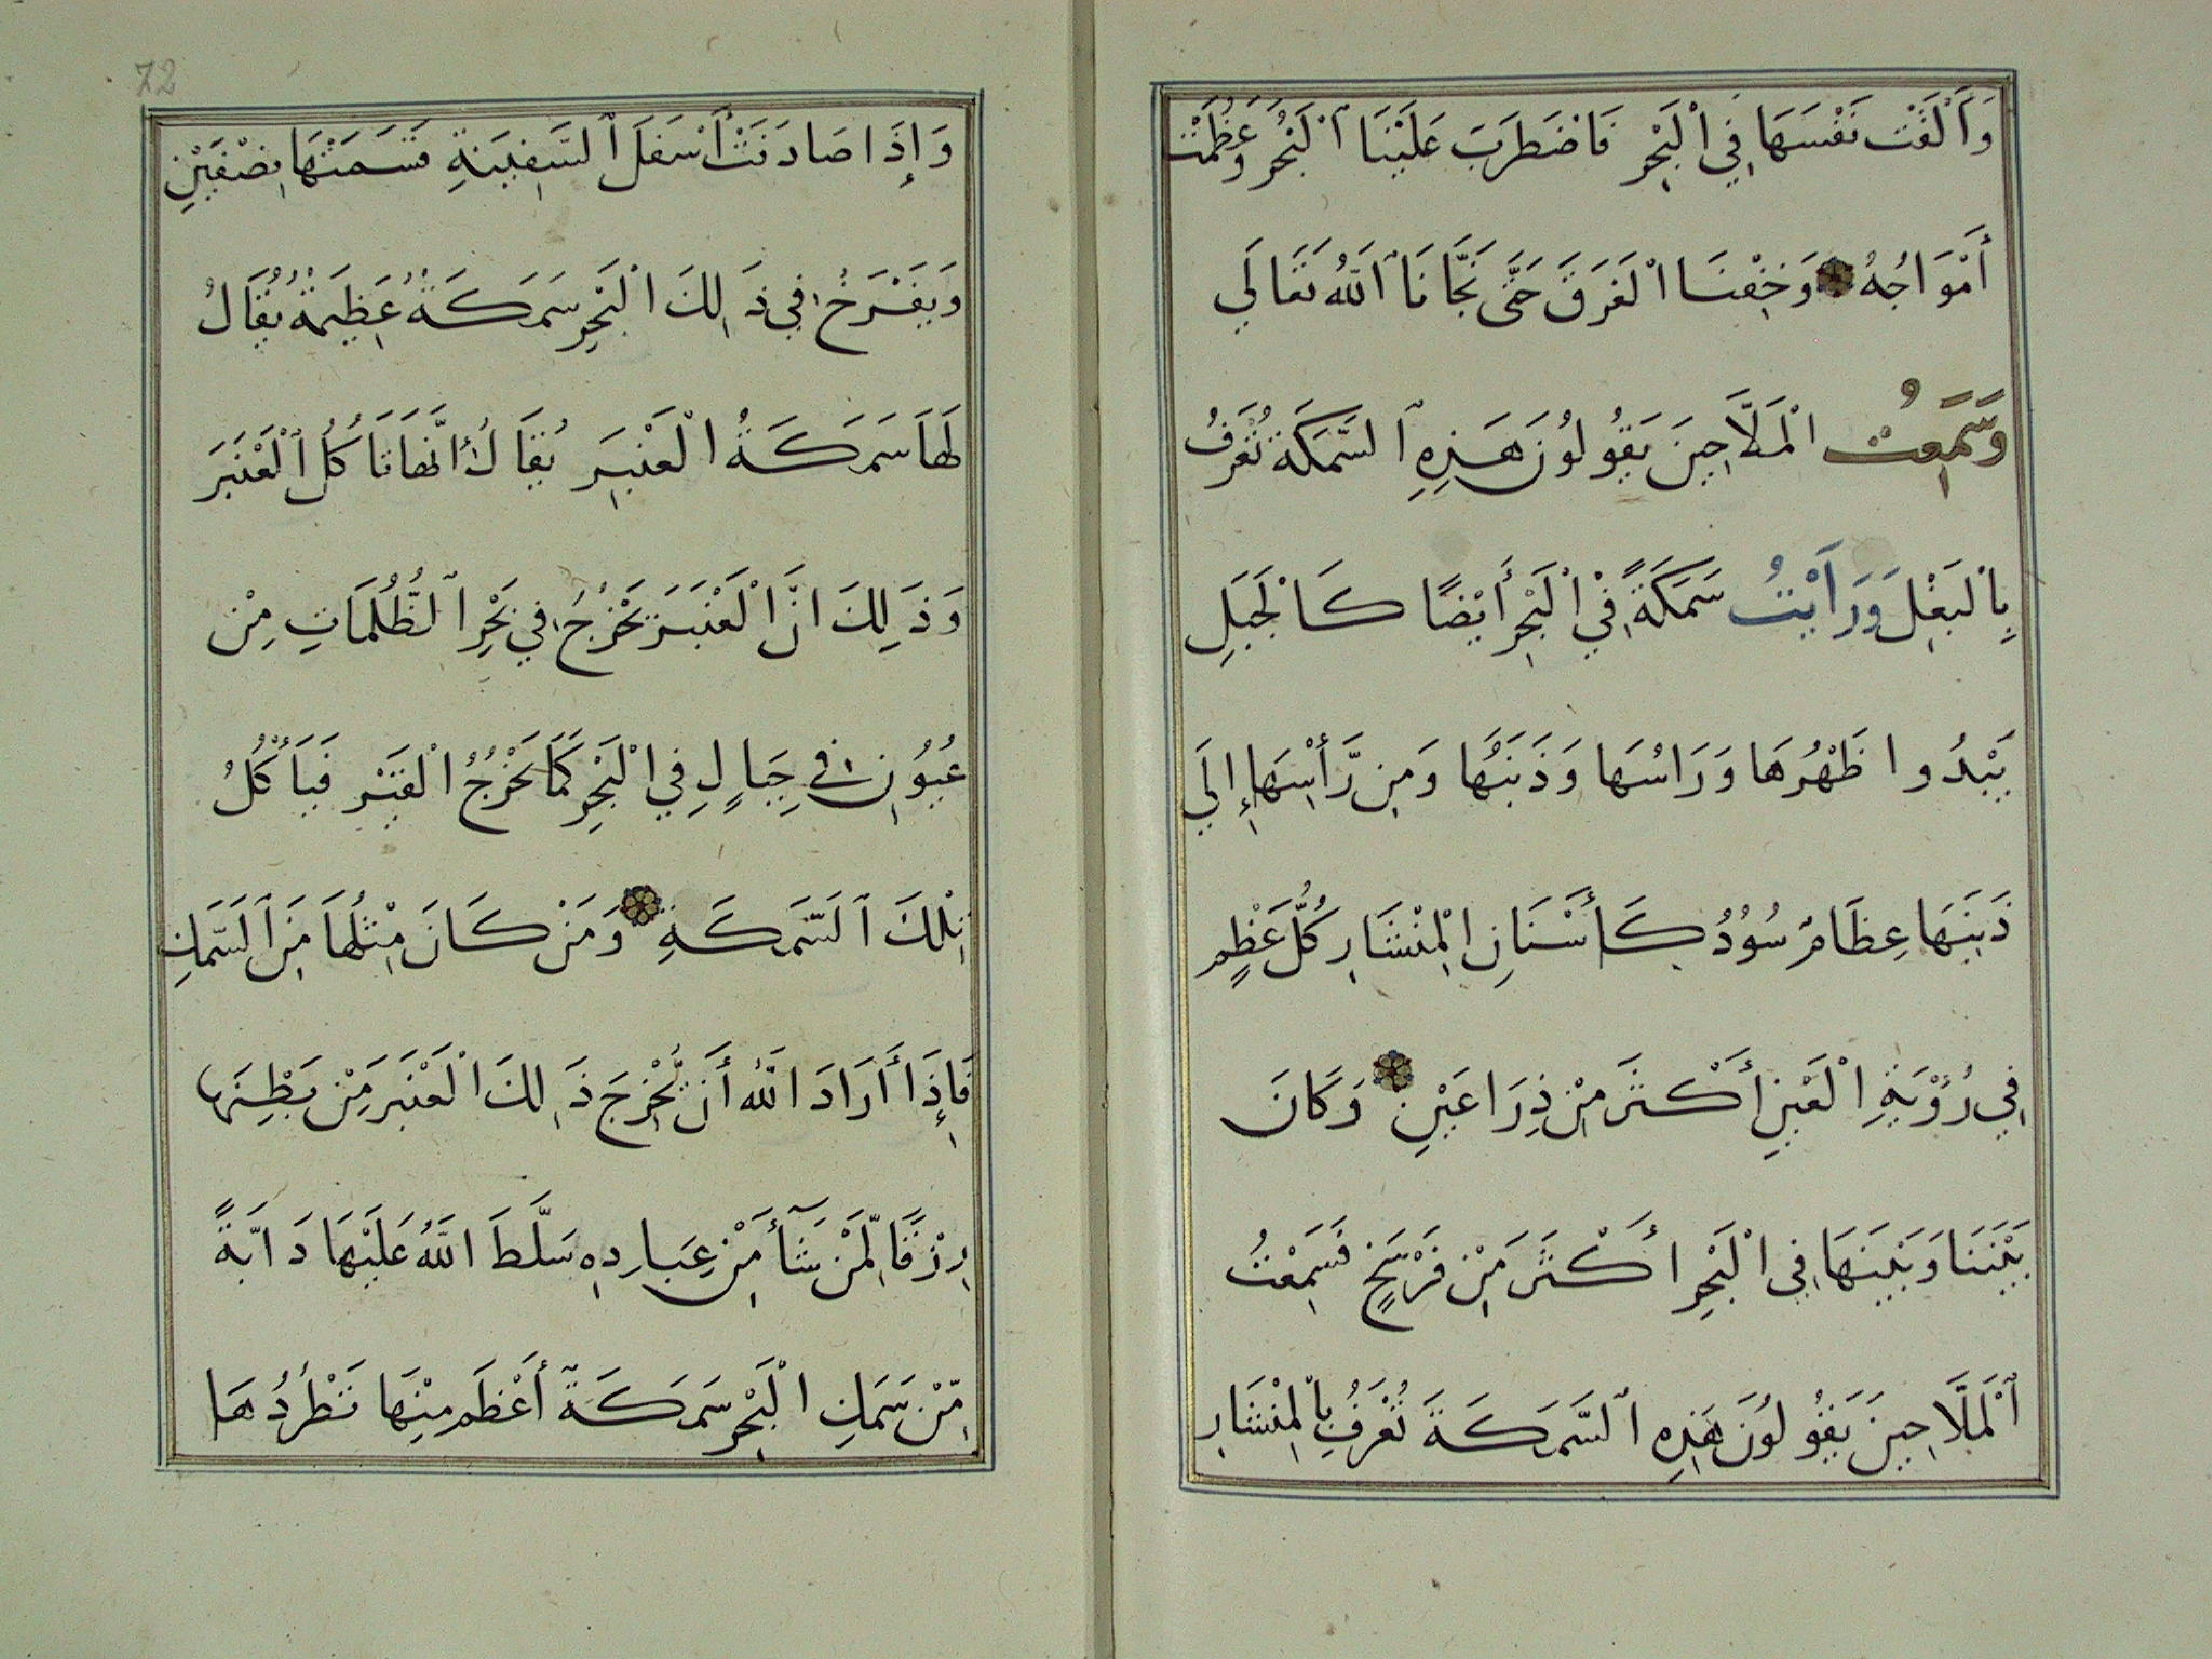 وَأَلْقَتْ نَفْسَهَا فِي الْبَحْرِ فَاضْطَرَبَ عَلَيْنَا ٱلْبَحْرُ وَعَظُمَتْ
أَمْوَاجُهُ وَخِفْنَا الْغَرَقَ حَتَّى نَجَّانَا ٱللهُ تَعَالَي
وَسَمِعْتُ الْمَلَّاحِينَ يَقُولُونَ هَذِهِ ٱلسَّمَكَةَ تُعْرَفُ
بِالْبَغْلِ وَرَأَيْتُ سَمَكَةً فِي الْبَحْرِ أَيْضًا كَالْجَبَلِ
يَبْدُوا ظَهْرُهَا وَرَاسُهَا وَذَنَبُهَا وَمِن رَّأْسِهَا إِلَي
ذَنَبِهَا عِظَامٌ سُوْدٌ كَأَسْنَانِ الْمِنْشَارِ كُلُّ عَظْمٍ
فِي رُؤْيَةِ الْعَيْنِ أَكْثَرَ مِنْ ذِرَاعَيْنِ وَكَانَ
بَيْنَنَا وَبَيْنَهَا فِي الْبَحْرِ أَكْثَرَ مِنْ فَرْسَخٍ فَسَمِعْتُ
ٱلْمَلَّاحِينَ يَقُولُونَ هَذِهِ ٱلسَّمَكَةَ تُعْرَفُ بِالْمِنْشَارِ
72
وَإِذَا صَادَفَتْ أَسْفَلَ ٱلسَّفِينَةِ قَسَمَتْهَا نِصْفَيْنِ
وَيَفْرَخُ فِي ذَلِكَ الْبَحْرِ سَمَكَةٌ عَظِيمَةٌ يُقَالُ
لَهَا سَمَكَةُ الْعَنْبَرِ يُقَالُ إِنَّهَا تَأكُلُ ٱلْعَنْبَرَ
وَذَلِكَ انَّ الْعَنْبَرَ يَخْرُجُ فِي بَحْرِ ٱلظُّلُمَاتِ مِنْ
عُيُونٍ فِي جِبَالٍ فِي الْبَحْرِ كَمَا يَخْرُجُ الْقَيْرِ فَيَأْكُلُ
تِلْكَ ٱلسَّمَكَةِ وَمَنْ كَانَ مِثْلُهَا مِنَ ٱلسَّمَكِ
فَإِذَا أَرَادَ اللهُ أَنْ يُّخْرِجَ ذَلِكَ الْعَنْبَرَ مِنْ بَطْنِهَا
رِزْقًا لِّمَنْ شَآأَ مِنْ عِبَادِهِ سَلَّطَ اللهُ عَلَيْهَا دَابَّةً
مِّنْ سَمَكِ الْبَحْرِ سَمَكَةً أَعْظَم مِنْهَا تَطْرُدُهَا